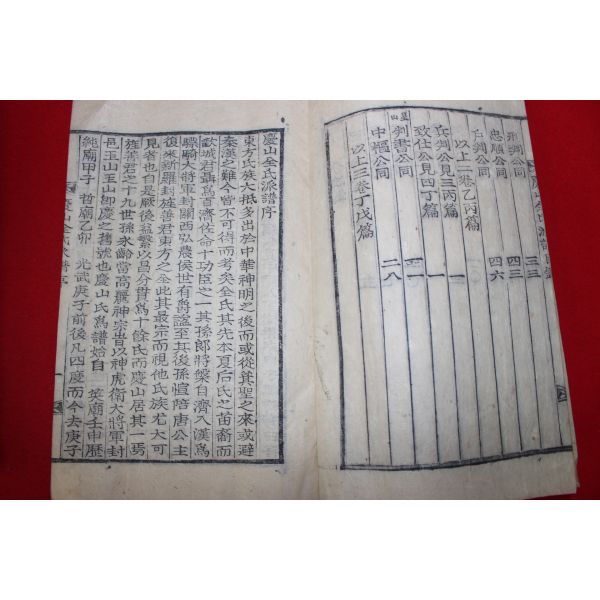 刑判公同 三三
忠順公同 四三
戶判公同 四六
以上二卷乙丙篇
兵判公見三丙篇 一
致仕公見四丁篇 一
星山判書公同
中樞公同 二八
以上三卷丁戊篇
慶山全氏派譜序
東方氏族大抵多出於中華神明之後而或從其聖之來或避
秦漢之難今皆不可得而考矣全氏其先本夏后氏之苗裔而
歡城君聶爲百濟佐命十功臣之一其孫郎將槃自濟入漢爲
驃騎大將軍封關西弘農侯世有爵諡至其後孫愃陪唐公主
復來新羅封旌善君東方之全此其最宗而視他氏族尤大可
見者也自是厥後益繁以昌分貫爲十餘氏而慶山居其一焉
旌善君之十九世孫永齡當高麗神宗旹以神虎衛大將軍封
邑玉山玉山卽慶之舊號也慶山氏爲譜始自 英廟壬申歷
純廟甲子 哲廟乙卯 光武庚子前後凡四度而今去庚子